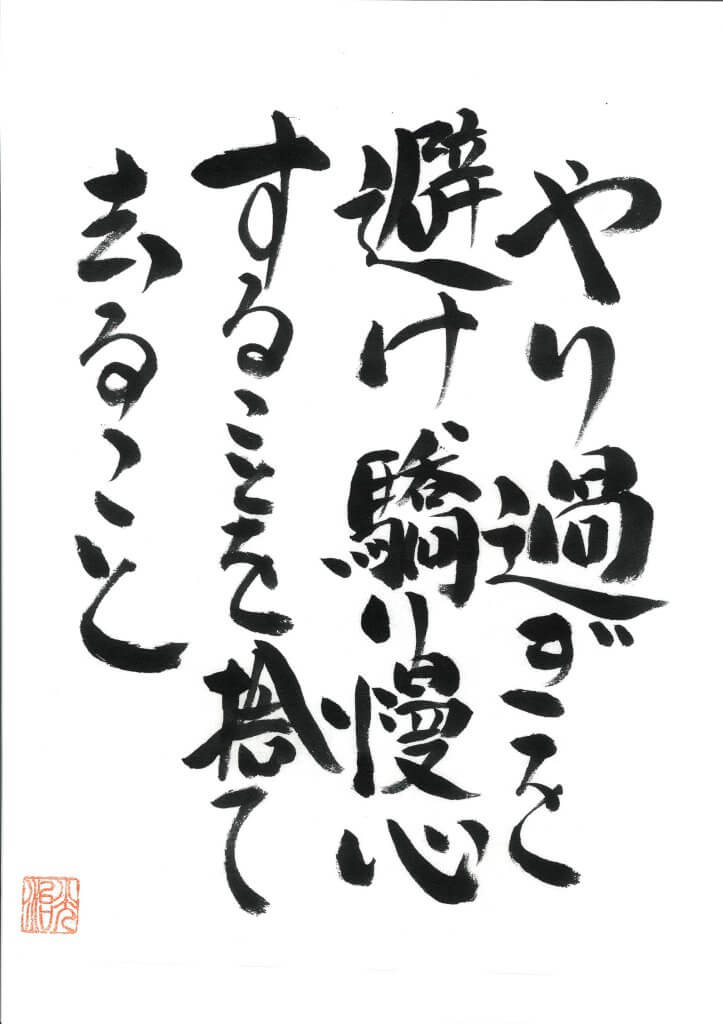 やり過ぎを
避け驕り慢心
することを捨て
去ること